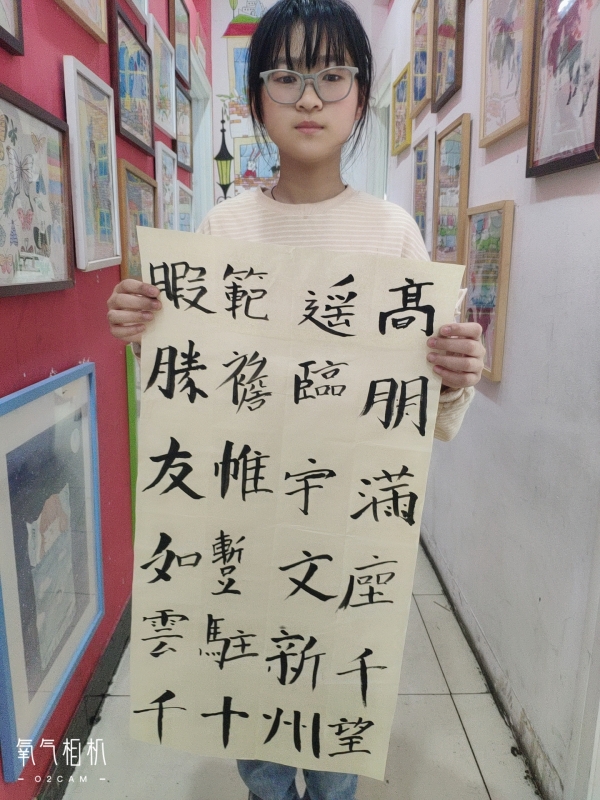 髙朋滿座千望
遥臨宇文新州
範襜帷暫駐十
暇勝友如雲千
氧气相机
- O2CAM -